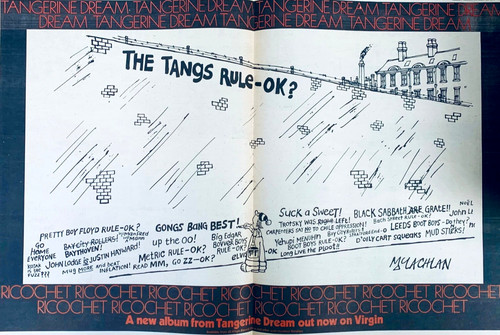 TANGERINE DREAM TANGERINE DREAM TANGERINE DREAM
DREAM TANGERINE DREAM TANGERINE DREAM
THE TANGS RULE-OK?
PRETTY BOY FLOYD RULE-OK?
GO HOME EVERYONE
BAY CITY ROLLERS!
BAYTHOVEN!
JOHN LODGE & JUSTIN HAYWARD!
MUQ MORE and NO INFLATION!
GONGS BANG BEST!
up the OO!
METRIC RULE-OK?
READ MM, GO ZZ-OK?
Big Edgar
BOVVER BOYS
RULE-OK
Suck a Sweet!
TROTSKY WAS RIGHT LEFT!
CARPENTERS SAY NO TO CHILD OPPRESSION!
Yehudi MENUHIN
BOOT BOYS RULE-OK!
LONG LIVE THE PLOUGH!
BLACK SABBATH ARE GRATE!!
Bach Street RULE-OK!
LEEDS BOOT BOYS - Do they?
D'OILY CART SQUEAKS
MUD STICKS!
NOËL
JOHN LI
McLACHLAN
RICOCHET RICOCHET RICOCHET RICOCHET RICOCHET
RICOCHET RICOCHET RICOCHET RICOCHET
A new album from Tangerine Dream out now on Virgin